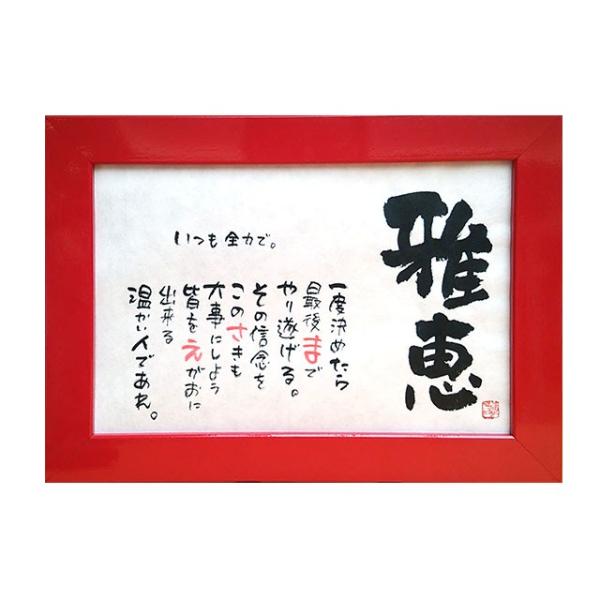 雅恵
一度決めたら
最後まで
やり遂げる。
その信念を
このさきも
大事にしよう
皆をえがおに
出来る
温かい人であれ。
いつも全力で。